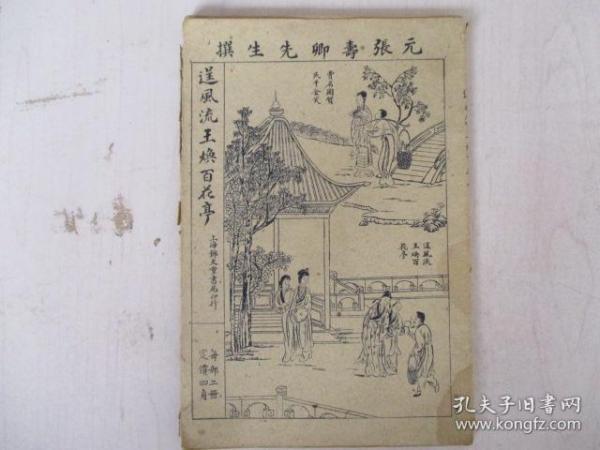 元張壽卿先生撰
逞風流王煥百花亭
上海錦文堂書局印行
每部二冊
定價四角
逞風流
王煥百
花亭
孔夫子旧书网
www.kongfz.com